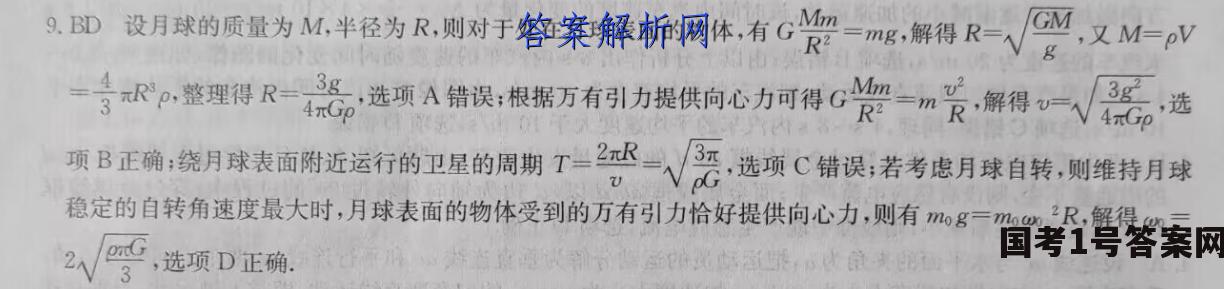 9. BD 设月球的质量为 M,半径为 R,则对于处在月球表面的物体,有 G\frac{Mm}{R^2}=mg,解得 R=\sqrt{\frac{GM}{g}},又 M=ρV
=\frac{4}{3}πR^3ρ,整理得 R=\frac{3g}{4πGρ},选项 A 错误;根据万有引力提供向心力可得 G\frac{Mm}{R^2}=m\frac{v^2}{R},解得 v=\sqrt{\frac{3g^2}{4πGρ}},选
项 B 正确;绕月球表面附近运行的卫星的周期 T=\frac{2πR}{v}=\sqrt{\frac{3π}{ρG}},选项 C 错误;若考虑月球自转,则维持月球
稳定的自转角速度最大时,月球表面的物体受到的万有引力恰好提供向心力,则有 m_0g=m_0ω_0^2R,解得 ω_0=
2\sqrt{\frac{ρπG}{3}},选项 D 正确.
答案解析网
国考1号答案网